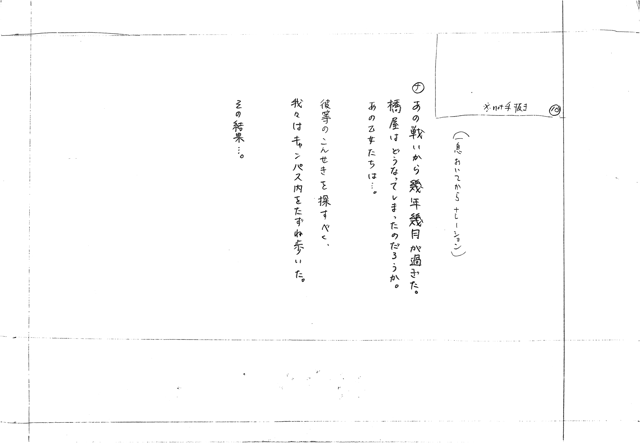 ⑩
(一息おいてからナレーション)
ナ あの戦いから幾年幾月が過ぎた。
橘屋はどうなってしまったのだろうか。
あの乙女たちは…。
彼等のこんせきを探すべく、
我々はキャンパス内をたずね歩いた。
その結果…。